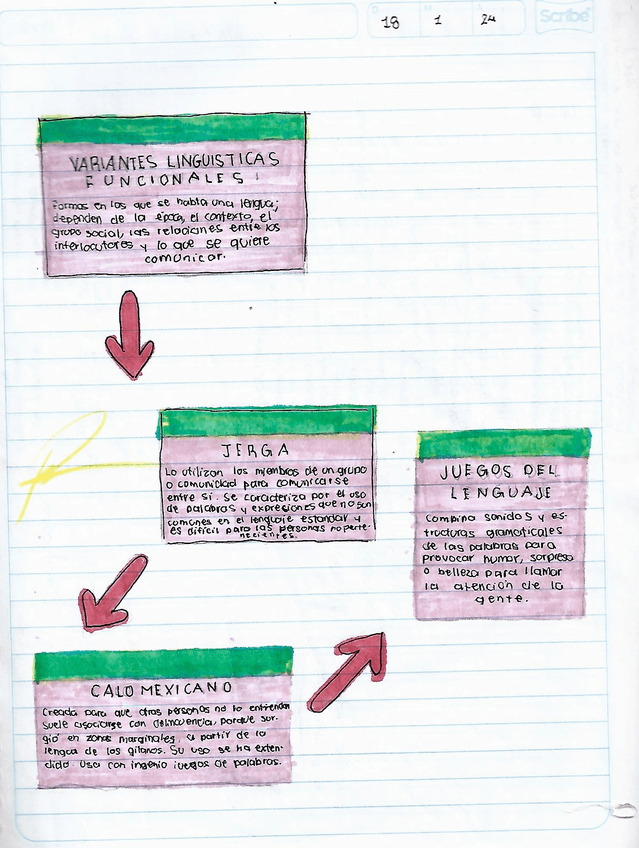 18 1 24
Scribe
VARIANTES LINGUISTICAS
FUNCIONALES
Formas en las que se habla una lengua;
dependen de la época, el contexto, el
grupo social, las relaciones entre los
interlocutores y lo que se quiere
comunicar.
JERGA
Lo utilizan los miembros de un grupo
o comunidad para comunicarse
entre sí. Se caracteriza por el uso
de palabras y expresiones que no son
comunes en el lenguaje estandar y
es dificil para las personas no perte-
necientes.
JUEGOS DEL
LENGUAJE
Combina sonidos y es-
tructuras gramaticales
de las palabras para
provocar humor, sorpresa
o belleza para llamar
la atención de la
gente.
CALO MEXICANO
Creada para que otras personas no lo entiendan
suele asociarse con delincuencia, porque sur-
gió en zonas marginales, a partir de la
lengua de los gitanos. Su uso se ha exten-
dido. Usa con ingenio juegos de palabras.